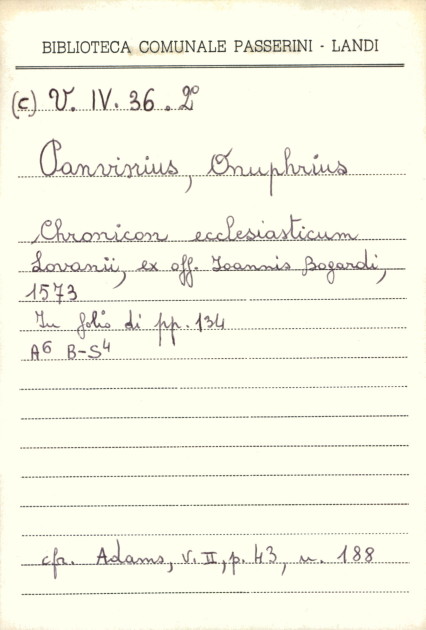 BIBLIOTECA COMUNALE PASSERINI - LANDI
(c) V. IV. 36. 2º
Panvinius, Onuphrius
Chronicon ecclesiasticum
Lovanii, ex off. Ioannis Bogardi,
1573
In folio di pp. 134
A⁶ B-S⁴
cfr. Adams, V. II, p. 43, n. 188